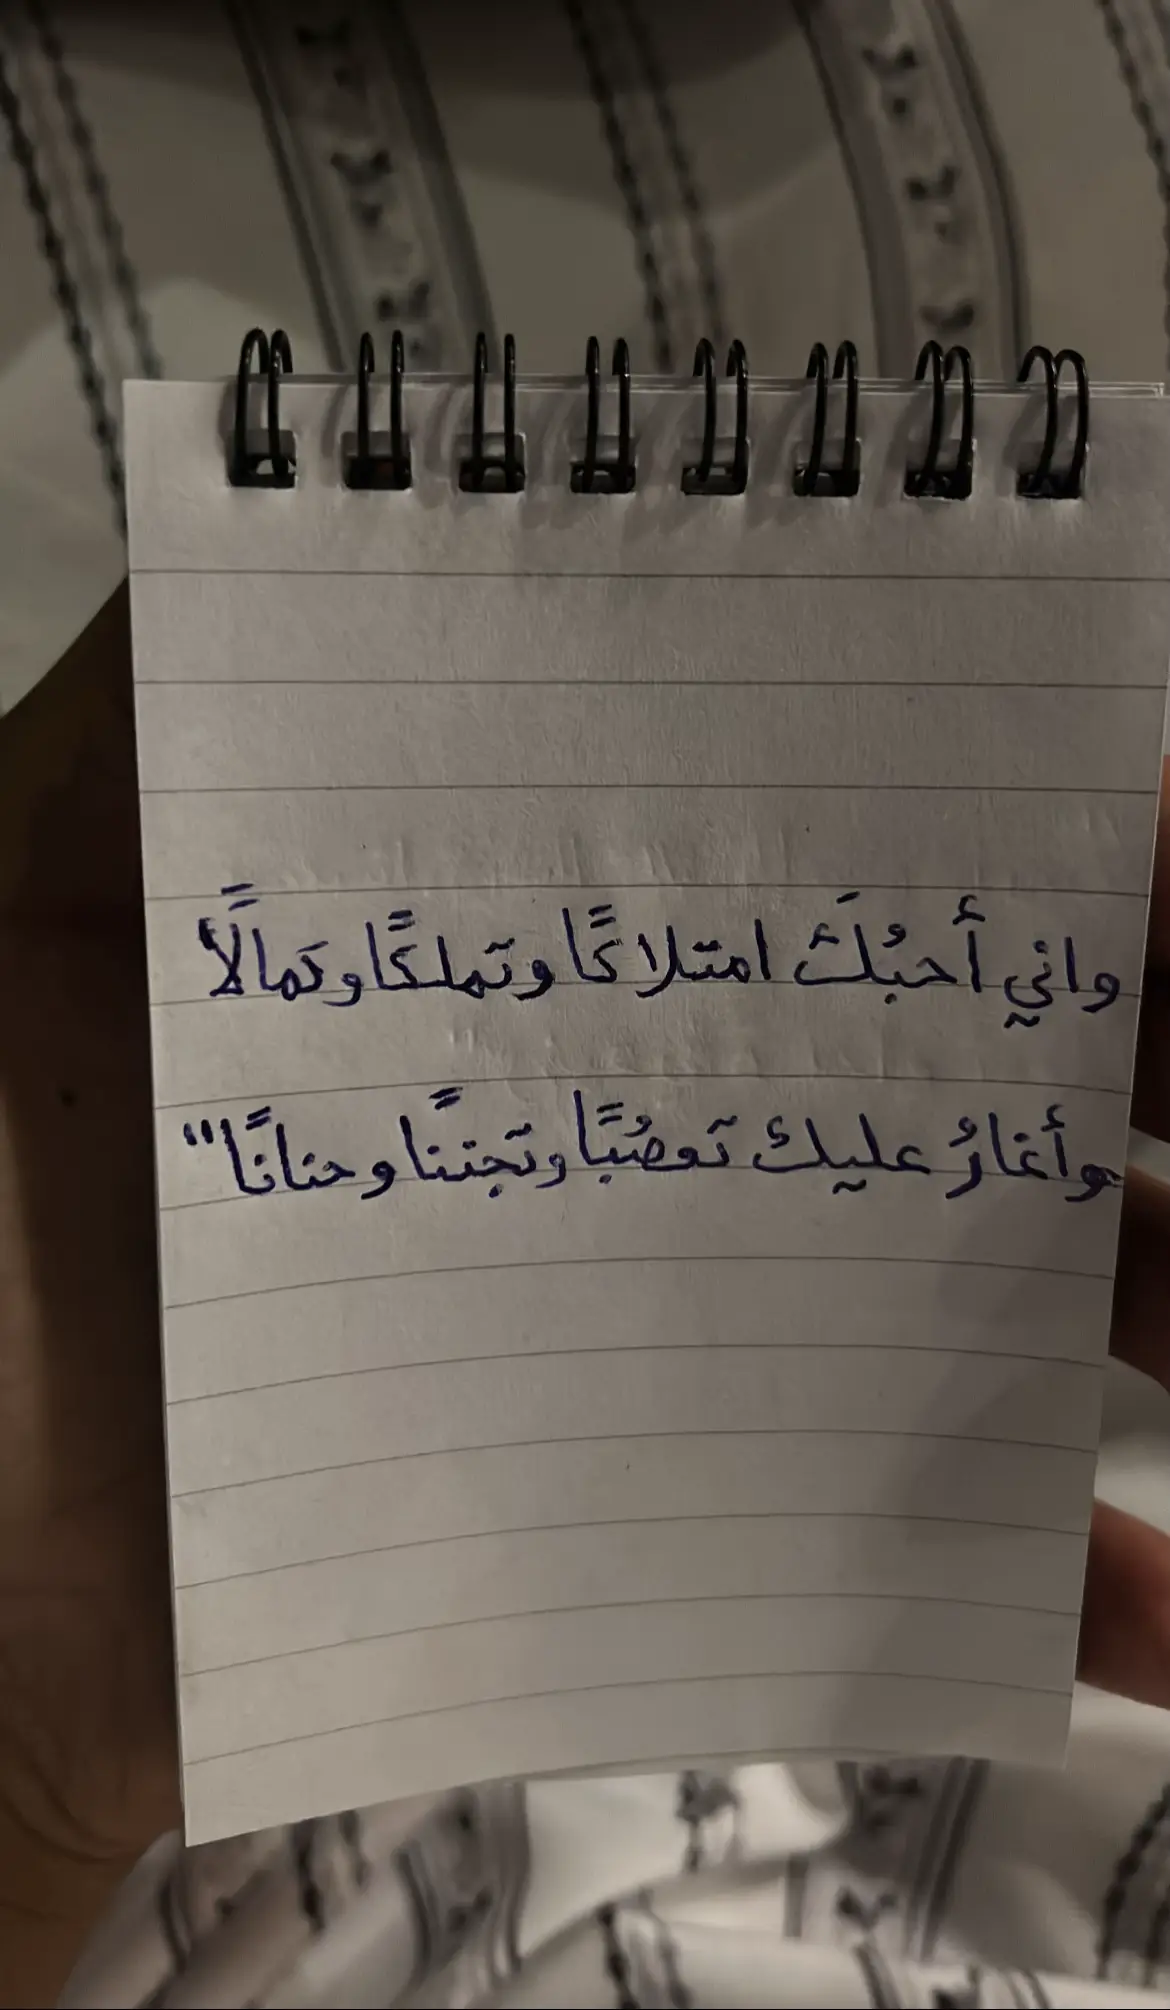 واني أحبُكَ امتلاكًا وتملكًا وكمالًا
وأغارُ عليك تعصُبًا وتجننًا وحنانًا"